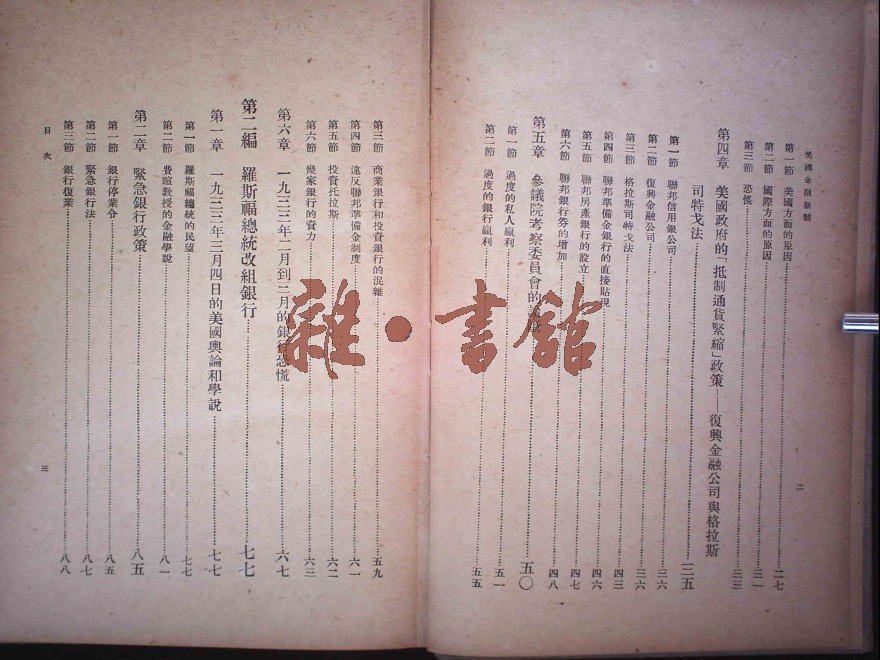 美國金融新制
第一節 美國方面的原因 二七
第二節 國際方面的原因 三一
第三節 恐慌 三三
第四章 美國政府的「抵制通貨緊縮」政策——復興金融公司與格拉斯
司特戈法 三五
第一節 聯邦信用銀公司 三六
第二節 復興金融公司 三六
第三節 格拉斯司特戈法 四三
第四節 聯邦準備金銀行的直接貼現 四六
第五節 聯邦房產銀行的設立 四七
第六節 聯邦銀行券的增加 四八
第五章 參議院考察委員會的 五〇
第一節 過度的私人贏利 五一
第二節 過度的銀行贏利 五五
二
第三節 商業銀行和投資銀行的混雜 五九
第四節 違反聯邦準備金制度 六一
第五節 投資托拉斯 六二
第六節 幾家銀行的資力 六三
第六章 一九三三年二月到三月的銀行恐慌 六七
第二編 羅斯福總統改組銀行 七七
第一章 一九三三年三月四日的美國輿論和學說 七七
第一節 羅斯福總統的民望 七七
第二節 費暄教授的金融學說 八一
第二章 緊急銀行政策 八五
第一節 銀行停業令 八五
第二節 緊急銀行法 八七
第三節 銀行復業 八八
目次
三
雜·書館